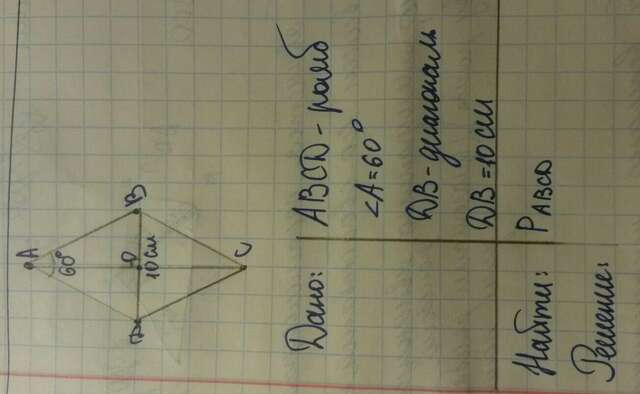 A
60°
D
О
B
10 см
C
Дано: ABCD - ромб
∠A = 60°
DB - диагональ
DB = 10 см
Найти: P ABCD
Решение: